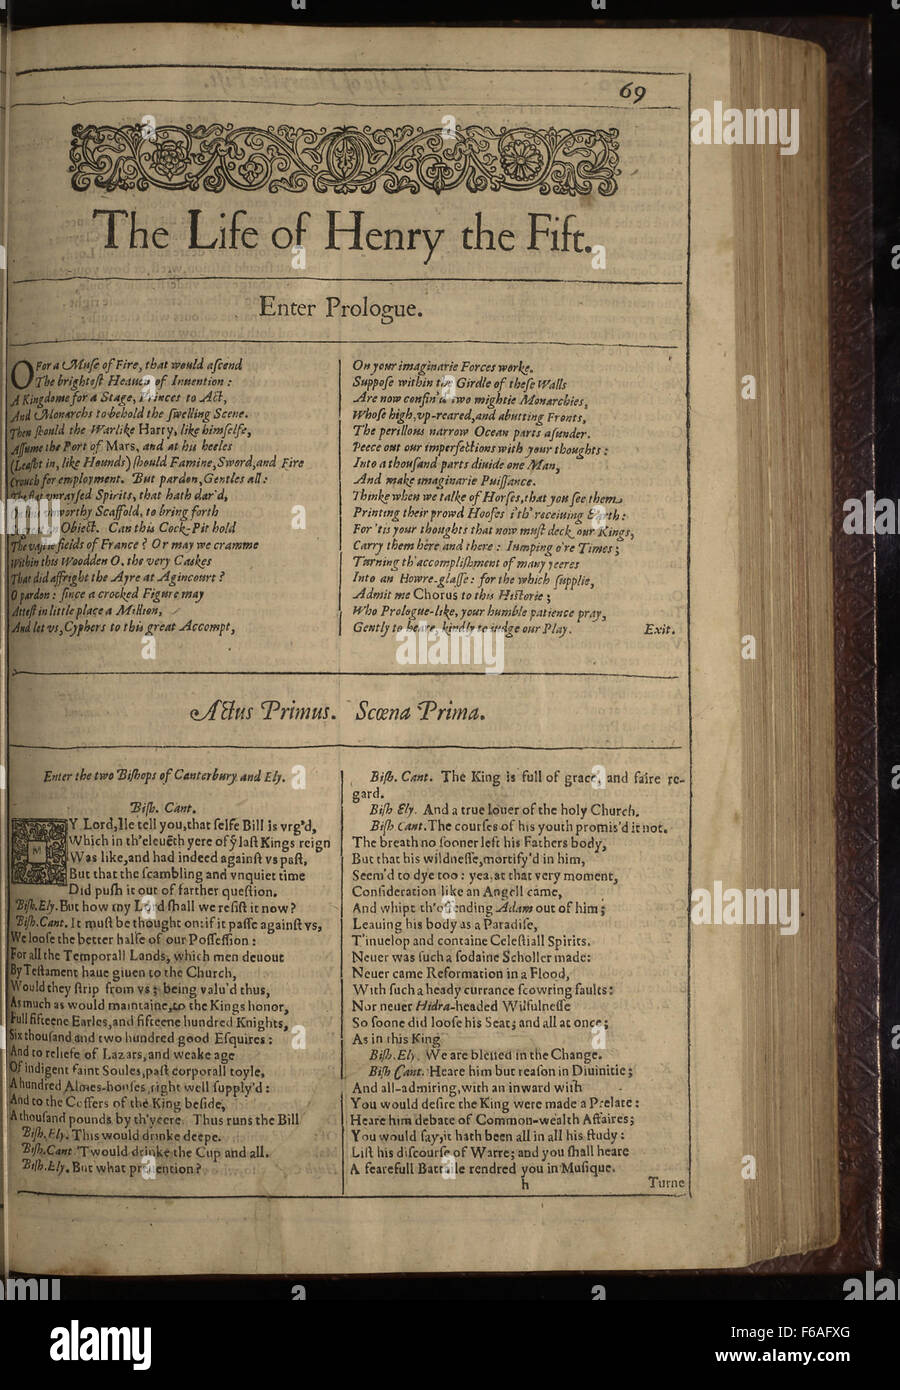 69
The Life of Henry the Fift.
Enter Prologue.
O For a Muſe of Fire, that would aſcend
The brighteſt Heauen of Inuention:
A Kingdome for a Stage, Princes to Act,
And Monarchs to behold the ſwelling Scene.
Then ſhould the Warlike Harry, like himſelfe,
Aſſume the Port of Mars, and at his heeles
(Leaſht in, like Hounds) ſhould Famine, Sword, and Fire
Crouch for employment. But pardon, Gentles all:
The flat vnrayſed Spirits, that hath dar'd,
On this vnworthy Scaffold, to bring forth
So great an Obiect. Can this Cock-Pit hold
The vaſtie fields of France? Or may we cramme
Within this Woodden O, the very Caskes
That did affright the Ayre at Agincourt?
O pardon: ſince a crooked Figure may
Atteſt in little place a Million,
And let vs, Cyphers to this great Accompt,
On your imaginarie Forces worke.
Suppoſe within the Girdle of theſe Walls
Are now confin'd two mightie Monarchies,
Whoſe high, vp-reared, and abutting Fronts,
The perillous narrow Ocean parts aſunder.
Peece out our imperfections with your thoughts:
Into a thouſand parts diuide one Man,
And make imaginarie Puiſſance.
Thinke when we talke of Horſes, that you ſee them
Printing their prowd Hoofes i'th' receiuing Earth:
For 'tis your thoughts that now muſt deck our Kings,
Carry them here and there: Iumping o're Times;
Turning th'accompliſhment of many yeeres
Into an Howre-glaſſe: for the which ſupplie,
Admit me Chorus to this Hiſtorie;
Who Prologue-like, your humble patience pray,
Gently to heare, kindly to iudge our Play. Exit.
Actus Primus. Scœna Prima.
Enter the two Biſhops of Canterbury and Ely.
Biſh. Cant.
MY Lord, Ile tell you, that ſelfe Bill is vrg'd,
Which in th'eleuẽth yere of yͤ laſt Kings reign
Was like, and had indeed againſt vs paſt,
But that the ſcambling and vnquiet time
Did puſh it out of farther queſtion.
Biſh. Ely. But how my Lord ſhall we reſiſt it now?
Biſh. Cant. It muſt be thought on: if it paſſe againſt vs,
We looſe the better halfe of our Poſſeſſion:
For all the Temporall Lands, which men deuout
By Teſtament haue giuen to the Church,
Would they ſtrip from vs; being valu'd thus,
As much as would maintaine, to the Kings honor,
Full fifteene Earles, and fifteene hundred Knights,
Six thouſand and two hundred good Eſquires:
And to reliefe of Lazars, and weake age
Of indigent faint Soules, paſt corporall toyle,
A hundred Almes-houſes, right well ſupply'd:
And to the Coffers of the King beſide,
A thouſand pounds by th'yeere. Thus runs the Bill
Biſh. Ely. This would drinke deepe.
Biſh. Cant 'Twould drinke the Cup and all.
Biſh. Ely. But what preuention?
Biſh. Cant. The King is full of grace, and faire re-
gard.
Biſh Ely. And a true louer of the holy Church.
Biſh Cant. The courſes of his youth promis'd it not.
The breath no ſooner left his Fathers body,
But that his wildneſſe, mortify'd in him,
Seem'd to dye too: yea, at that very moment,
Conſideration like an Angell came,
And whipt th'offending Adam out of him;
Leauing his body as a Paradiſe,
T'inuelop and containe Celeſtiall Spirits.
Neuer was ſuch a ſodaine Scholler made:
Neuer came Reformation in a Flood,
With ſuch a heady currance ſcowring faults:
Nor neuer Hidra-headed Wilfulneſſe
So ſoone did looſe his Seat; and all at once;
As in this King
Biſh. Ely. We are bleſſed in the Change.
Biſh Cant. Heare him but reaſon in Diuinitie;
And all-admiring, with an inward wiſh
You would deſire the King were made a Prelate:
Heare him debate of Common-wealth Affaires;
You would ſay, it hath been all in all his ſtudy:
Liſt his diſcourſe of Warre; and you ſhall heare
A fearefull Battaile rendred you in Muſique.
h
Turne
alamy
Image ID: F6AFXG
www.alamy.com